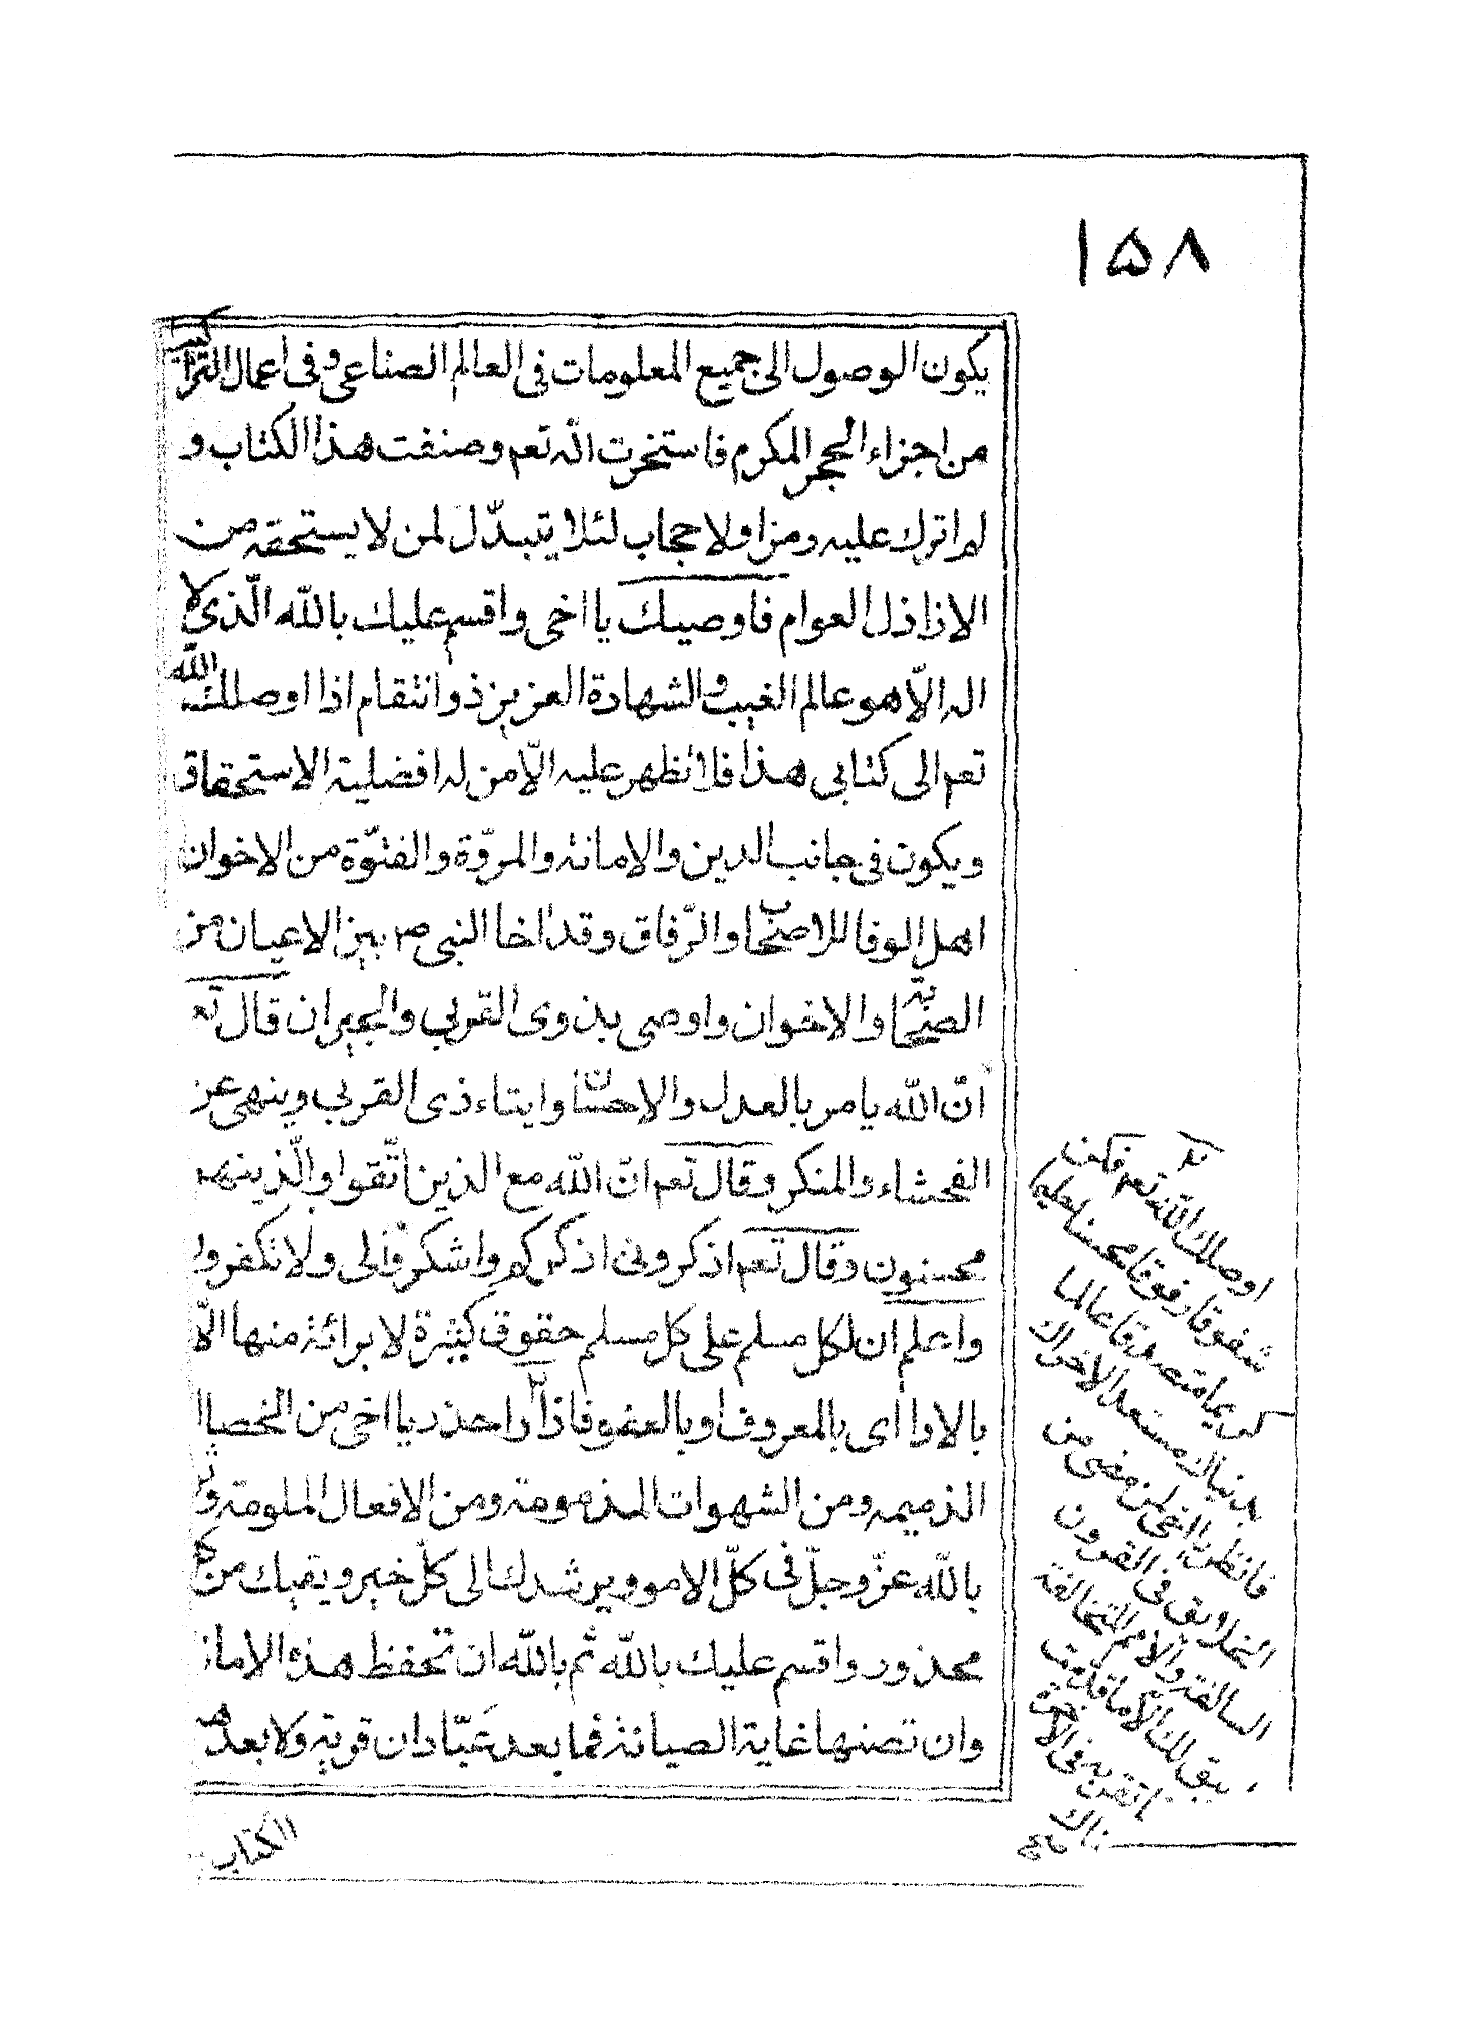 ١٥٨
يكون الوصول الى جميع المعلومات فى العالم الصناعى و فى اعمال التراكيب
من اجزاء الحجر المكرم فاستخرت اللّه تعم و صنفت هذا الكتاب و
لم اترك عليه رمزا ولا حجاب لئلا يتبدّل لمن لا يستحقه من
الاراذل العوام فاوصيك يا اخى واقسم عليك بالله الّذى لا
اله الّا هو عالم الغيب والشهادة العزيز ذو انتقام اذا اوصلك الله
تعم الى كتابى هذا فلا تظهر عليه الّا من له افضلية الاستحقاق
ويكون فى جانب الدين والامانة والمروّة والفتوّة من الاخوان
اهل الوفا للاصحاب والرّفاق وقد اخا النبى ص بين الاعيان من
الصحابة والاخوان واوصى بذوى القربى والجيران قال تع
انّ الله يامر بالعدل والاحسان وايتاء ذى القربى وينهى عن
الفحشاء والمنكر وقال تعم انّ الله مع الذين اتّقوا والّذينهم
محسنون وقال تعم اذكرونى اذكركم واشكروا لى ولا تكفروا
واعلم ان لكل مسلم على كل مسلم حقوق كثيرة لا برائة منها الّا
بالادا اى بالمعروف او بالعفو فاذا احذر يا اخى من الخصا
الذميمه ومن الشهوات المذمومة ومن الافعال الملومة
بالله عزّ وجلّ فى كلّ الامور ويرشدك الى كلّ خير ويقيك من كل
محذور واقسم عليك بالله ثم بالله ان تحفظ هذه الامانة
وان تصنها غاية الصيانة فما بعد عبّادان قرية ولا بعد هذا
الكتاب
اوصلك اللّه تعم فكن
شفوقا رفوقا محسنا
كريما متصدقا عالما
بدنياك مستعد الاخراك
فانظر يا اخى لمن مضى من
الخلايق فى القرون
السالفة والامم المتخالفة
يبق لك الّا ما
فى الاخرة